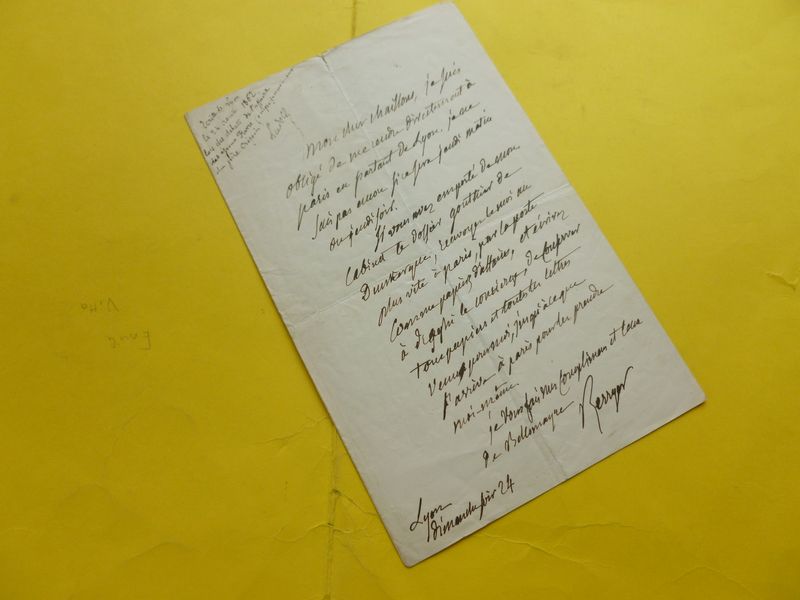 le 24 août 1862
Mon cher Chaillous, je suis
obligé de me rendre directement à
paris en partant de Lyon. je ne
sais pas encore si ce sera jeudi matin
ou jeudi soir.
Si vous avez emporté de mon
Cabinet le dossier gouthier de
Dunkerque, renvoyez le moi au
plus vite à paris, par la poste
Comme papiers d'affaires, et écrivez
à le concierge, de conserver
tous papiers et toutes les lettres
venus pour moi, jusqu'à ce que
j'arrive à paris pour les prendre
moi-même.
je vous fais mes Complimens et ceux
de Bellemayre
Berryer
Lyon
Dimanche soir 24